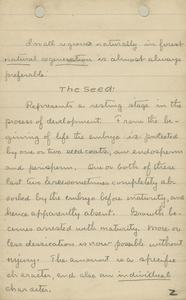 Small regions naturally in forest
natural regeneration is almost always
preferable.
The Seed:
Represents a resting stage in the
process of development. From the be-
ginning of life the embryo is protected
by one or two seed coats, an endosperm
and perisperm. One or both of these
last two are sometimes completely ab-
sorbed by the embryo before maturity, and
hence apparently absent. Growth be-
comes arrested with maturity. More or
less dessication is now possible without
injury. The amount is a specific
character, and also an individual
character.
2